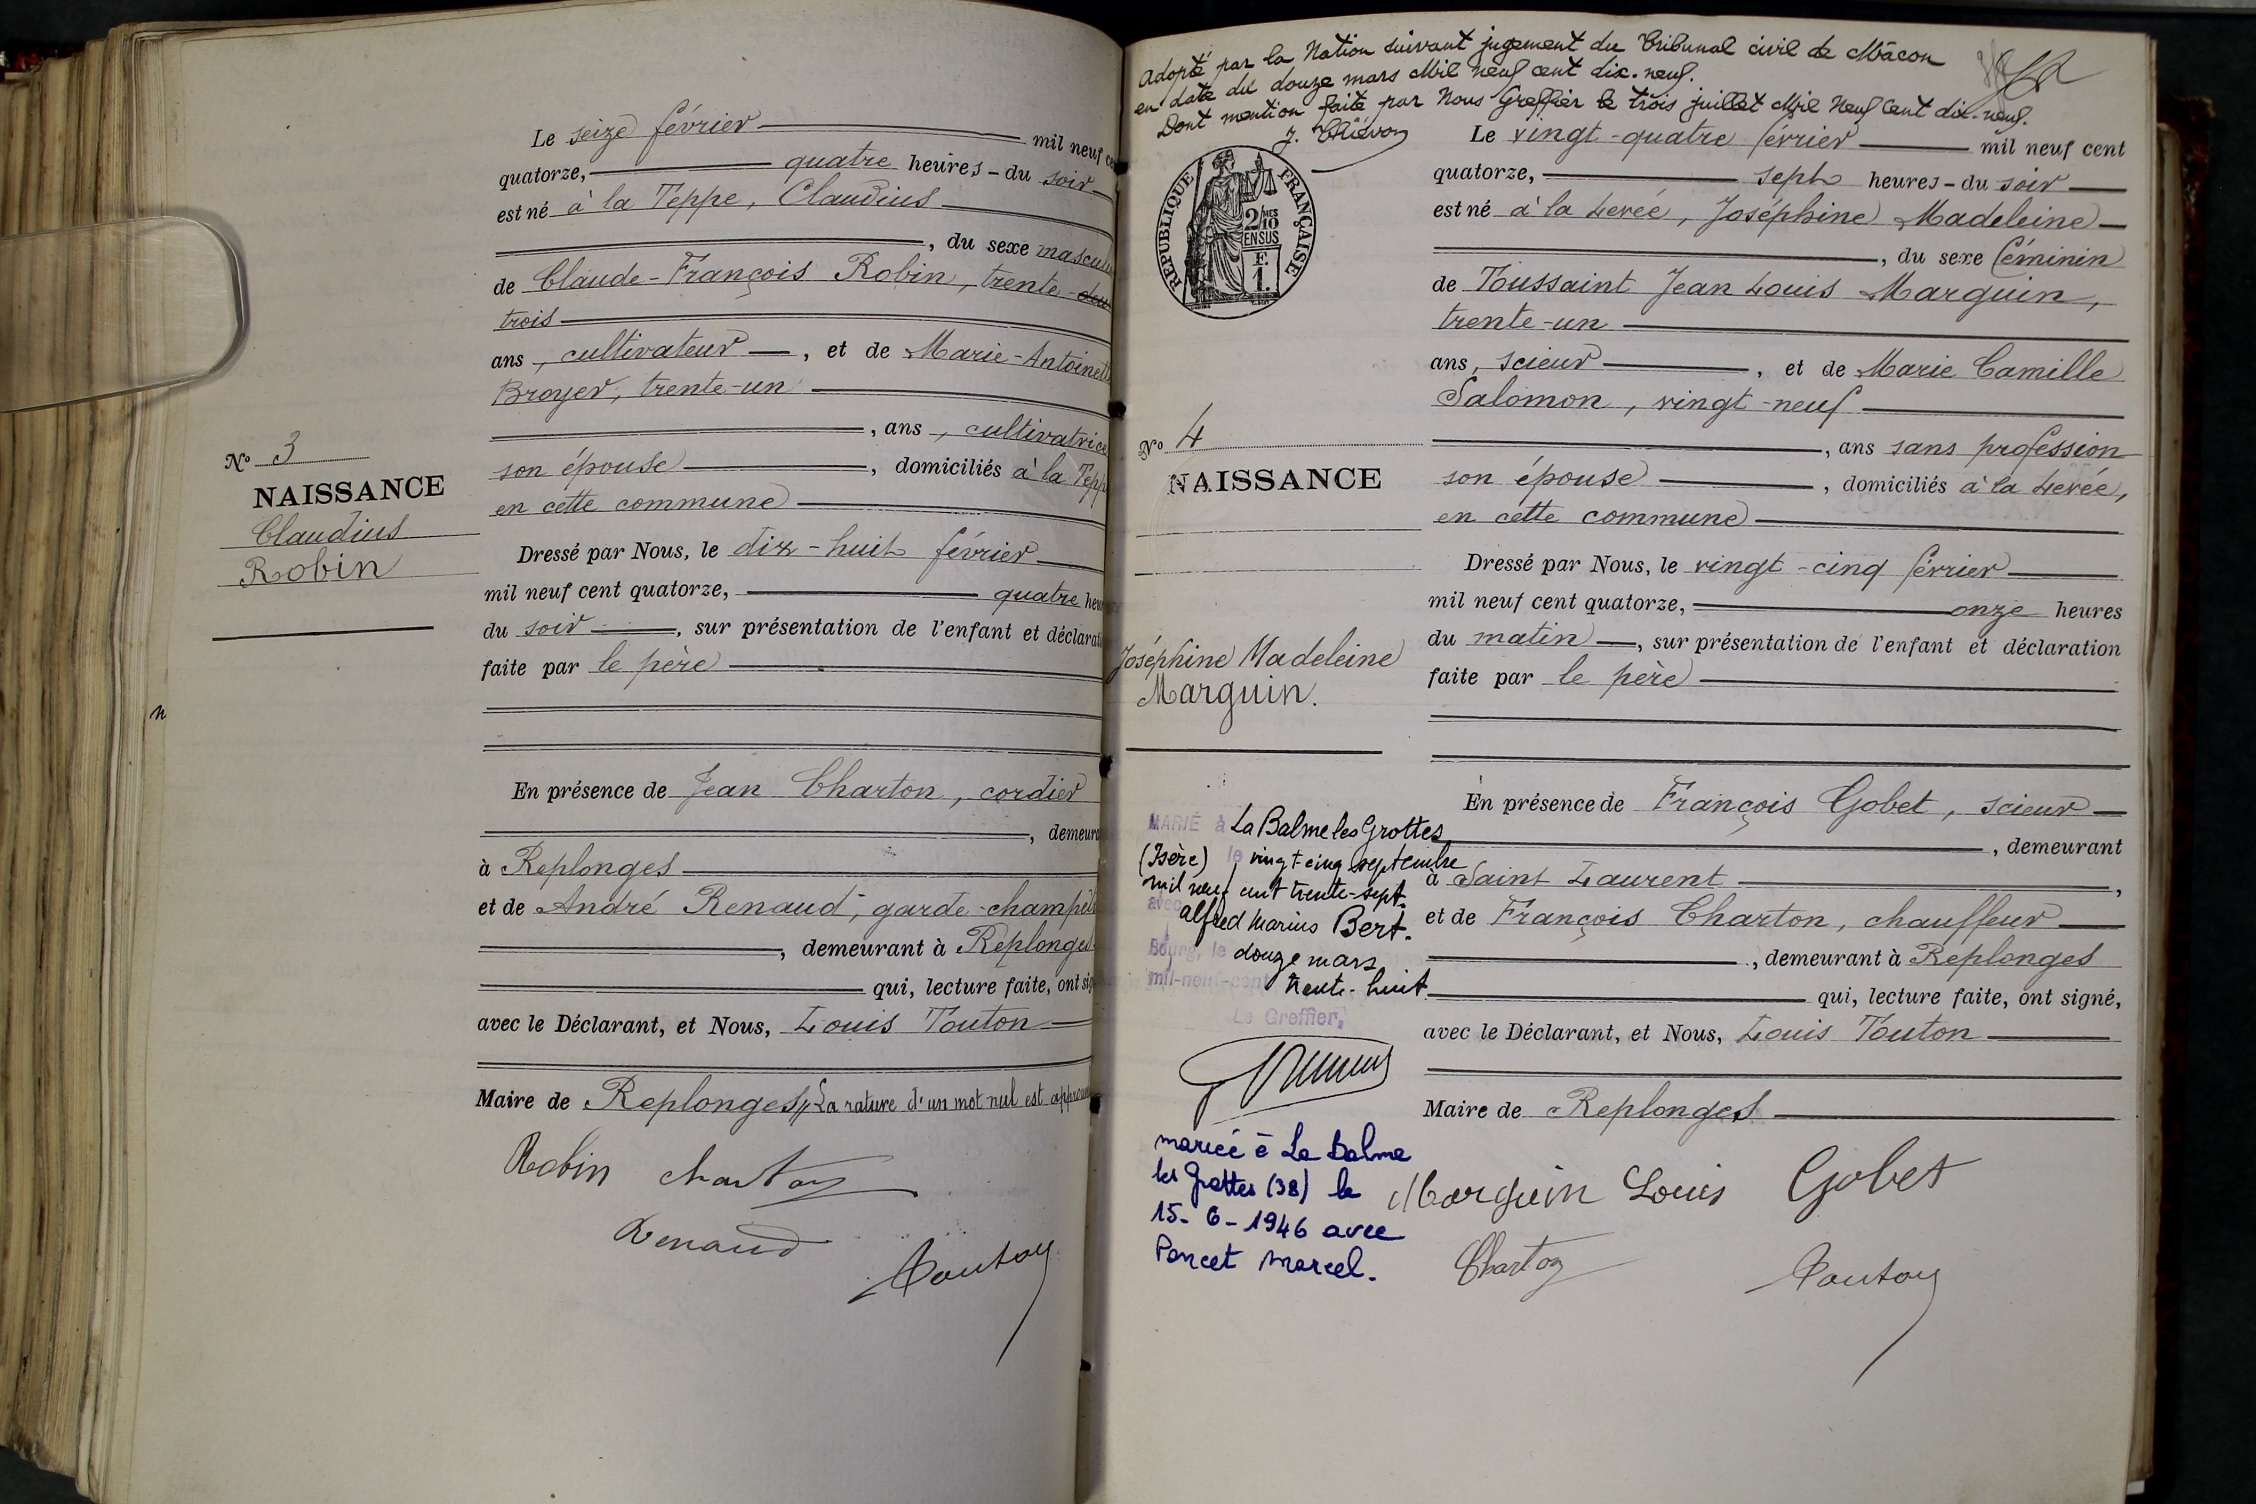 Le seize février mil neuf
quatorze, quatre heures - du soir
est né à la Teppe, Claudius
, du sexe masculin
de Claude-François Robin, trente-deux
trois
ans, cultivateur, et de Marie-Antoinette
Broyer, trente-un
, ans, cultivatrice
son épouse, domiciliés à la Teppe
en cette commune
Nº 3
NAISSANCE
Claudius
Robin
Dressé par Nous, le dix-huit février
mil neuf cent quatorze, quatre heures
du soir, sur présentation de l'enfant et déclaration
faite par le père
En présence de Jean Charton, cordier
, demeurant
à Replonges
et de André Renaud, garde-champêtre
, demeurant à Replonges
qui, lecture faite, ont signé
avec le Déclarant, et Nous, Louis Touton
Maire de Replonges, La rature d'un mot nul est approuvée
Robin Charton
Renaud
Touton
Adopté par la Nation suivant jugement du Tribunal civil de Mâcon
en date du douze mars Mil neuf cent dix-neuf.
Dont mention faite par Nous Greffier le trois juillet Mil Neuf Cent dix-neuf.
RÉPUBLIQUE FRANÇAISE
2/10 MES
EN SUS
F.
1.
Le vingt-quatre février mil neuf cent
quatorze, sept heures - du soir
est né à la Levée, Joséphine Madeleine
, du sexe féminin
de Toussaint Jean Louis Marguin,
trente-un
ans, scieur, et de Marie Camille
Salomon, vingt-neuf
, ans sans profession
son épouse, domiciliés à la Levée,
en cette commune
Nº 4
NAISSANCE
Joséphine Madeleine
Marguin.
Dressé par Nous, le vingt-cinq février
mil neuf cent quatorze, onze heures
du matin, sur présentation de l'enfant et déclaration
faite par le père
En présence de François Gobet, scieur
, demeurant
à Saint Laurent,
et de François Charton, chauffeur
, demeurant à Replonges
qui, lecture faite, ont signé,
avec le Déclarant, et Nous, Louis Touton
Maire de Replonges
MARIÉ à La Balme les Grottes
(Isère) le vingt-cinq septembre
mil neuf cent trente-sept.
avec Alfred Marius Bert.
Bourg, le douze mars
mil-neuf-cent trente-huit
Le Greffier,
mariée à La Balme
les Grottes (38) le
15-6-1946 avec
Poncet Marcel.
Marguin Louis Gobet
Charton Touton